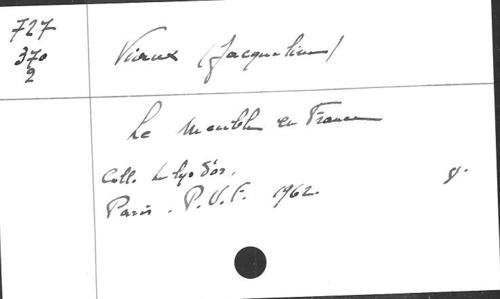 727
370
2
Viaux (Jacqueline)
Le meuble en France
Coll. Le lys d'or.
Paris. P.U.F. 1962. 8°.